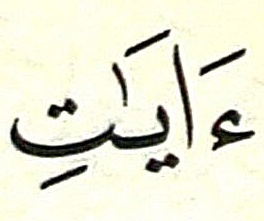 ءَايَٰتِ